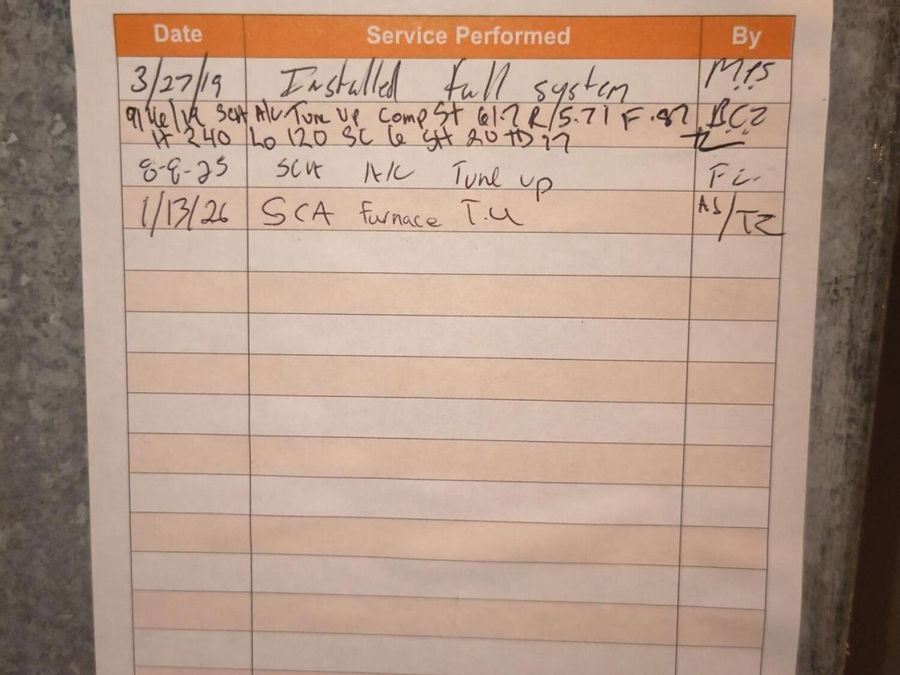 Date Service Performed By
3/27/19 Installed full system M.P.S
SCA A/C Tune up Comp St 61.7 R/5.71 F .87 BCZ
H 240 Lo 120 SC 6 SH 20 TD 17
8-8-25 SCA A/C Tune up
1/13/26 SCA Furnace T.U AJ/TZ